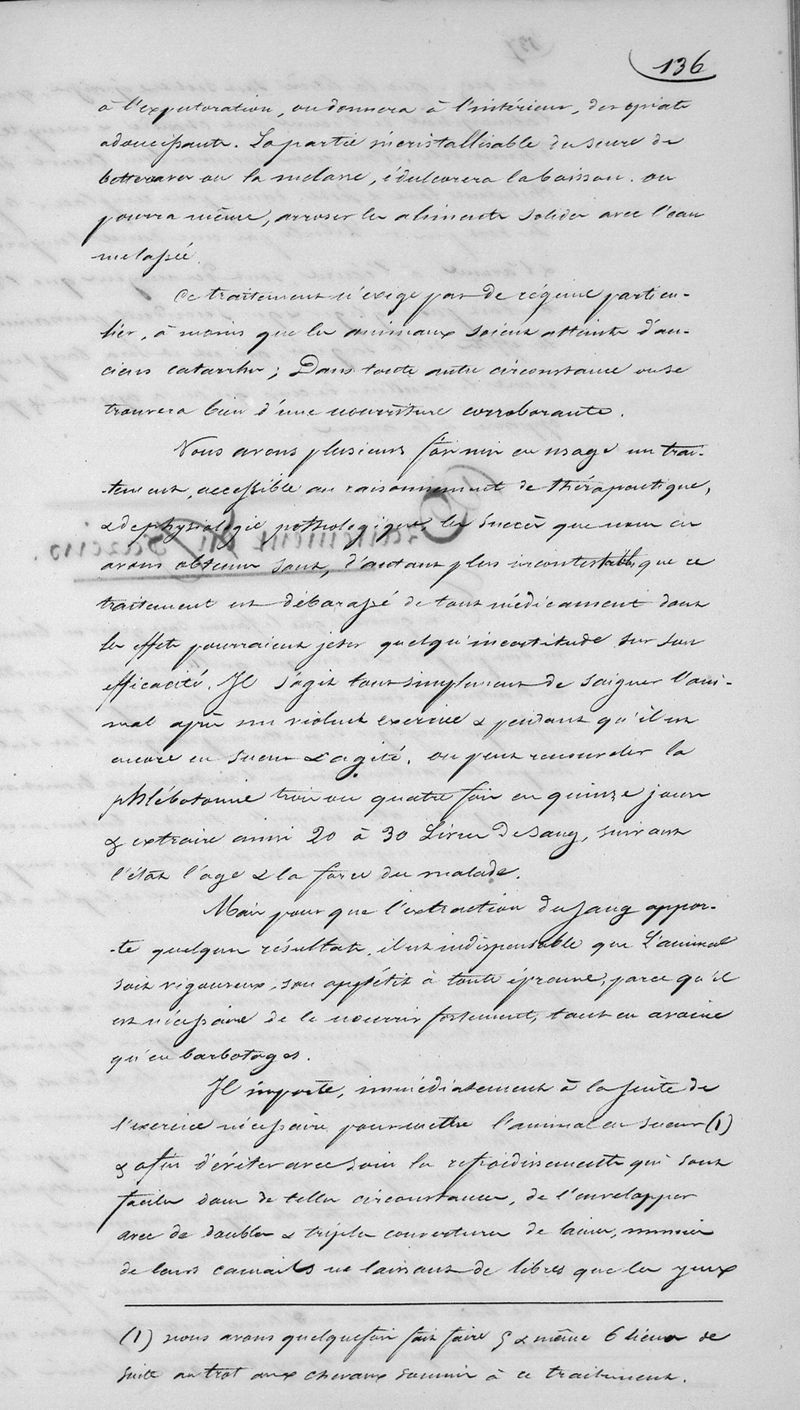 136
à l'expectoration, on donnera à l'intérieur, des opiats
adoucissants. La partie incristallisable du sucre de
betteraves ou la mélasse, édulcorera la boisson. on
pourra même, arroser les aliments solides avec l'eau
mélassée.
Ce traitement n'exige pas de régime particu-
lier, à moins que les animaux soient atteints d'an-
ciens catarrhes; Dans toute autre circonstance on se
trouvera bien d'une nourriture corroborante.
Nous avons plusieurs fois mis en usage un trai-
-tement, accessible au raisonnement de thérapeutique,
& de physiologie pathologique les succès que nous en
avons obtenus sont, d'autant plus incontestables que ce
traitement est débarassé de tout médicament dont
les effets pourraient jeter quelqu'incertitude sur son
efficacité. Il s'agit tout simplement de saigner l'ani-
mal après un violent exercice & pendant qu'il est
encore en sueur & agité. on peut renouveler la
phlébotomie trois ou quatre fois en quinze jours
& extraire ainsi 20 à 30 Livres de sang, suivant
l'état l'age & la force du malade.
Mais pour que l'extraction du sang appor-
-te quelques résultats, il est indispensable que L'animal
soit vigoureux, son appétit à toute épreuve, parce qu'il
est nécessaire de le nourrir fortement, tant en avoine
qu'en barbotages.
Il importe, immédiatement à la suite de
l'exercice nécessaire pour mettre l'animal en sueur (1)
& afin d'éviter avec soin les refroidissements qui sont
faciles dans de telles circonstances, de l'envelopper
avec de doubles & triples couvertures de laine, munies
de leurs camails ne laissant de libres que les yeux
(1) nous avons quelquefois fait faire 5 & même 6 lieues de
suite au trot aux chevaux soumis à ce traitement.